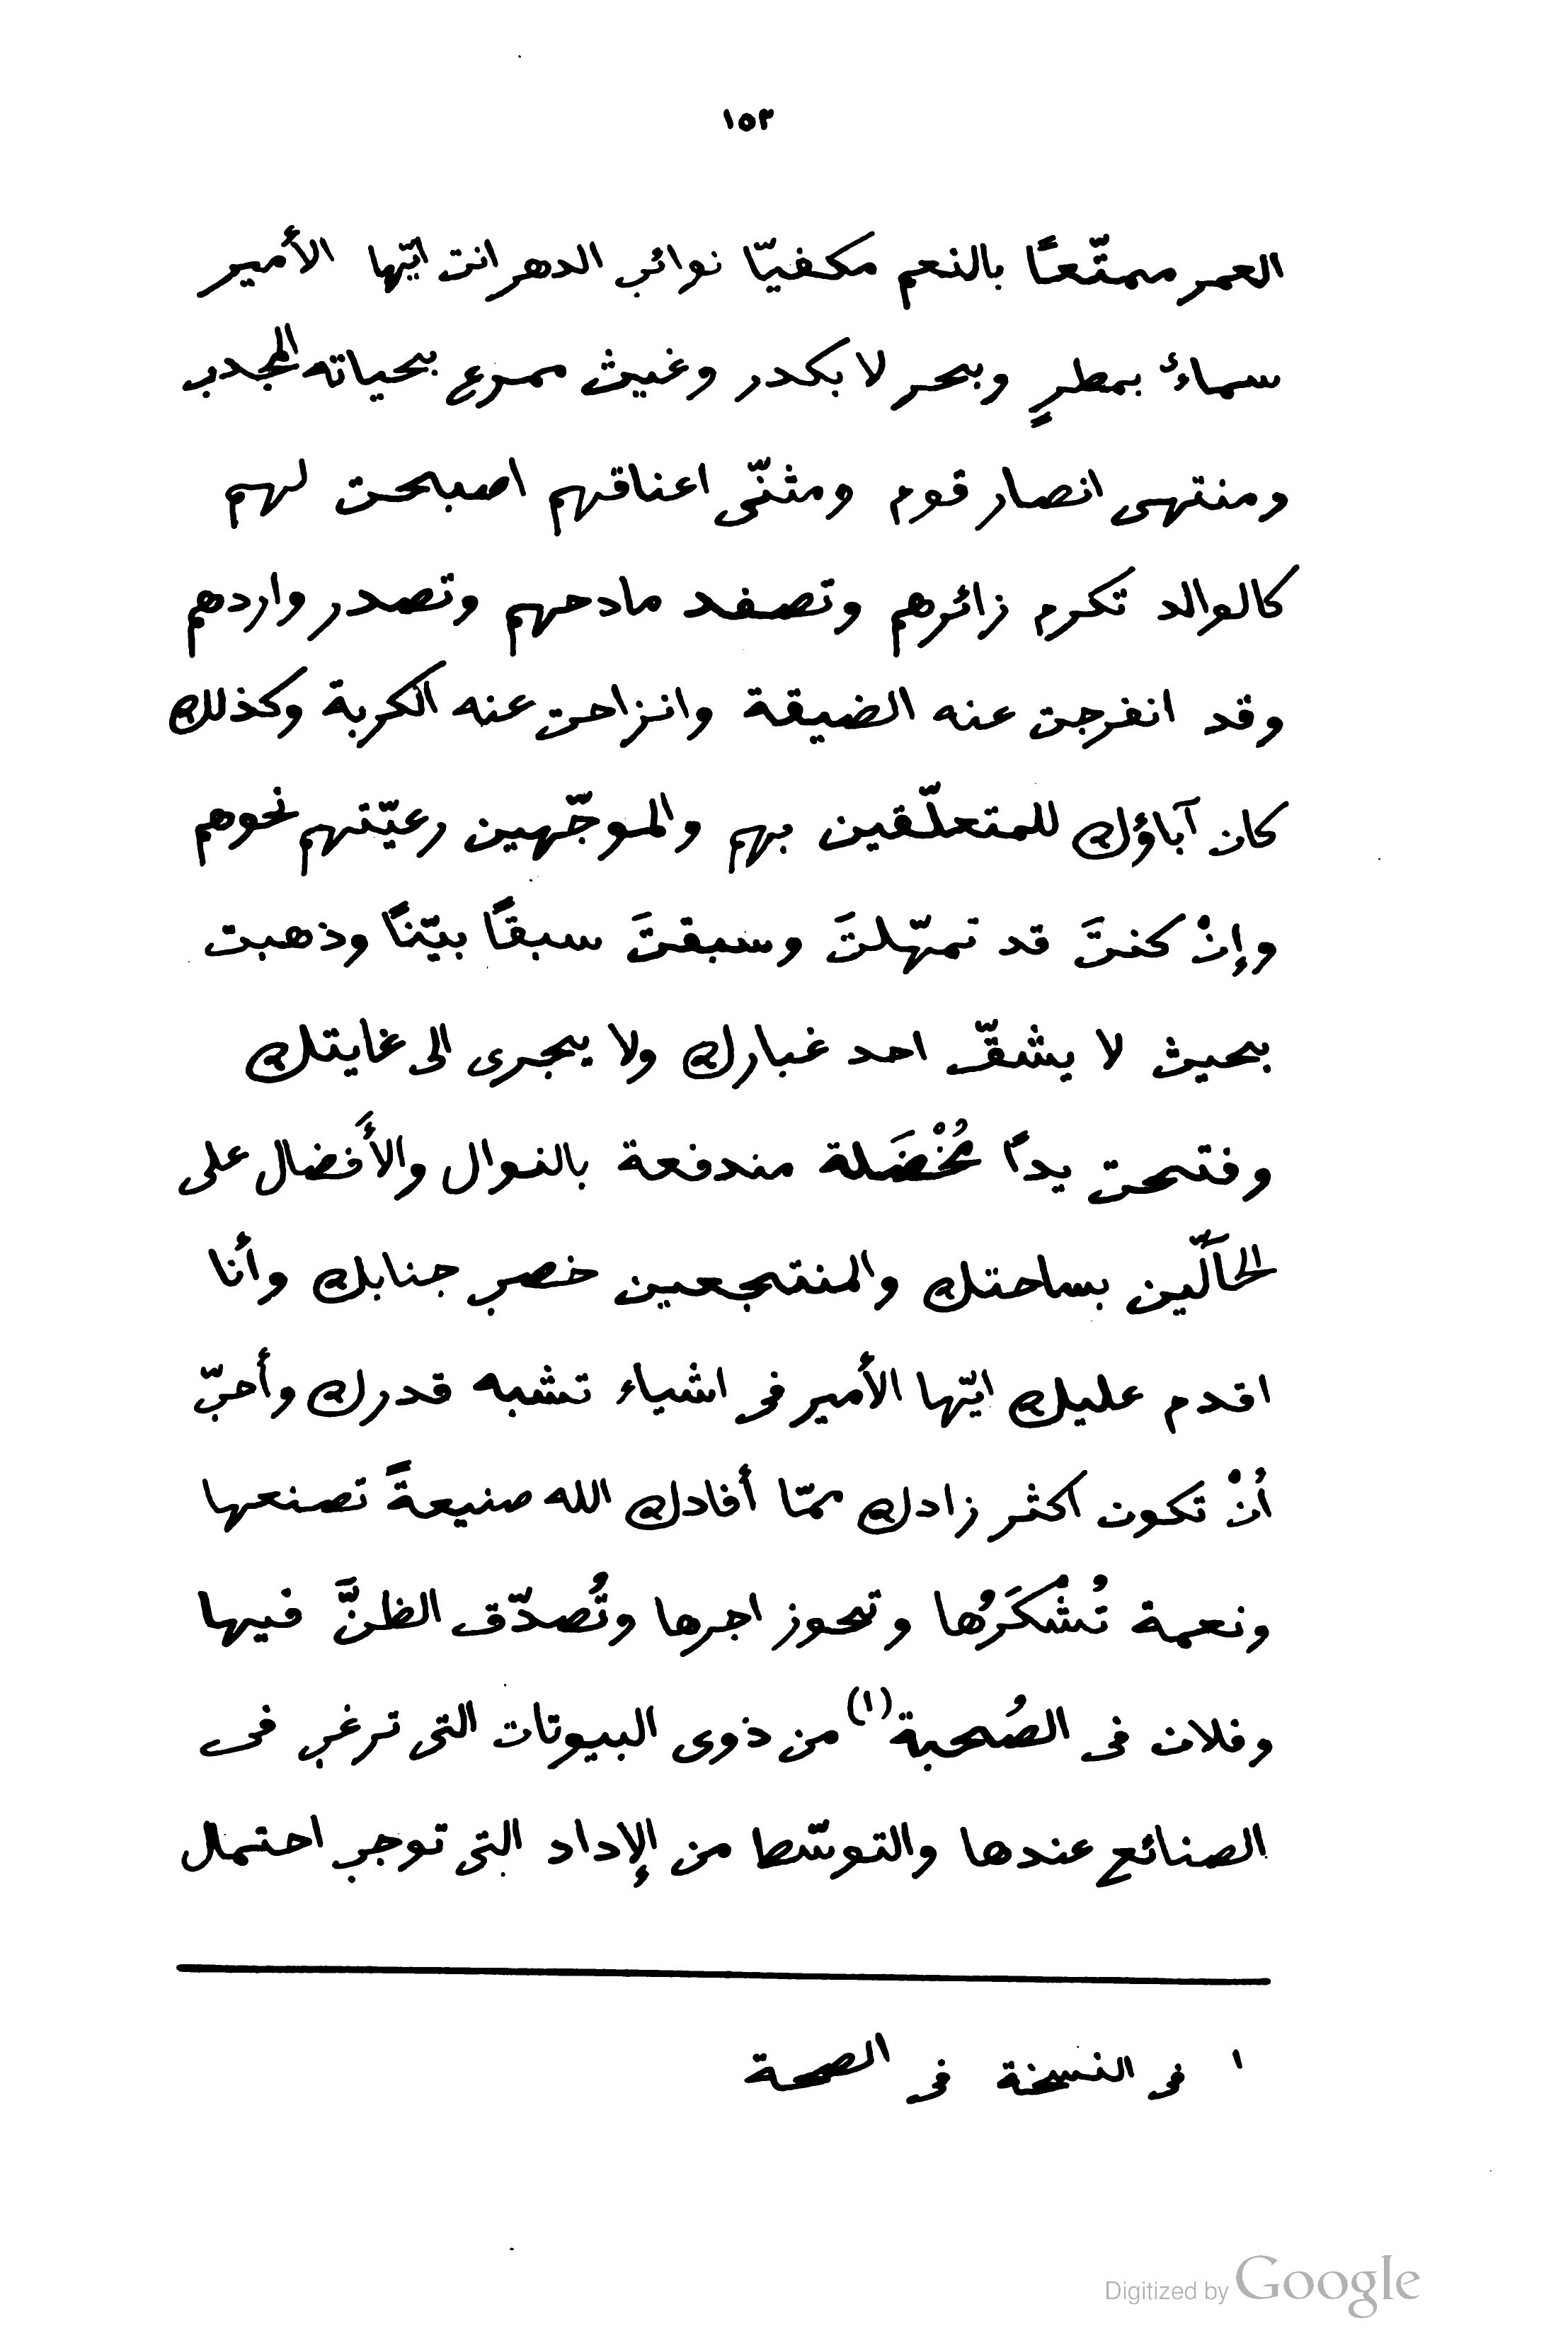 ١٥٣
العمر ممتّعاً بالنعم مكفيّا نوائب الدهر انت ايّها الأمير
سماءٌ بمطرٍ وبحر لا بكدر وغيث ممرع بحياته المجدب
ومنتهى انصار قوم ومثنّى اعناقهم اصبحت لهم
كالوالد تكرم زائرهم وتصفد مادحهم وتصدر واردهم
وقد انفرجت عنه الضيقة وانزاحت عنه الكربة وكذلك
كان آباؤك للمتعلّقين بهم والموجّهين رعيّتهم نحوهم
وإنْ كنتَ قد تمهّلتَ وسبقتَ سبقاً بيّناً وذهبت
بحيث لا يشقّ احد غبارك ولا يجرى الى غايتك
وفتحت يداً مُخْضَلة مندفعة بالنوال والأَفضال على
الحالّين بساحتك والمنتجعين خصب جنابك وأنا
اقدم عليك ايّها الأمير فى اشياء تشبه قدرك وأحبّ
أنْ تكون اكثر زادك ممّا أفادك الله صنيعةً تصنعها
ونعمة تُشْكَرُها وتحوز اجرها وتُصدّق الظنَّ فيها
وفلان فى الصُحبة (١) من ذوى البيوتات التى ترغب فى
الصنائع عندها والتوسّط من الإداد التى توجب احتمال
١ فى النسخة فى الصحة
Digitized by Google